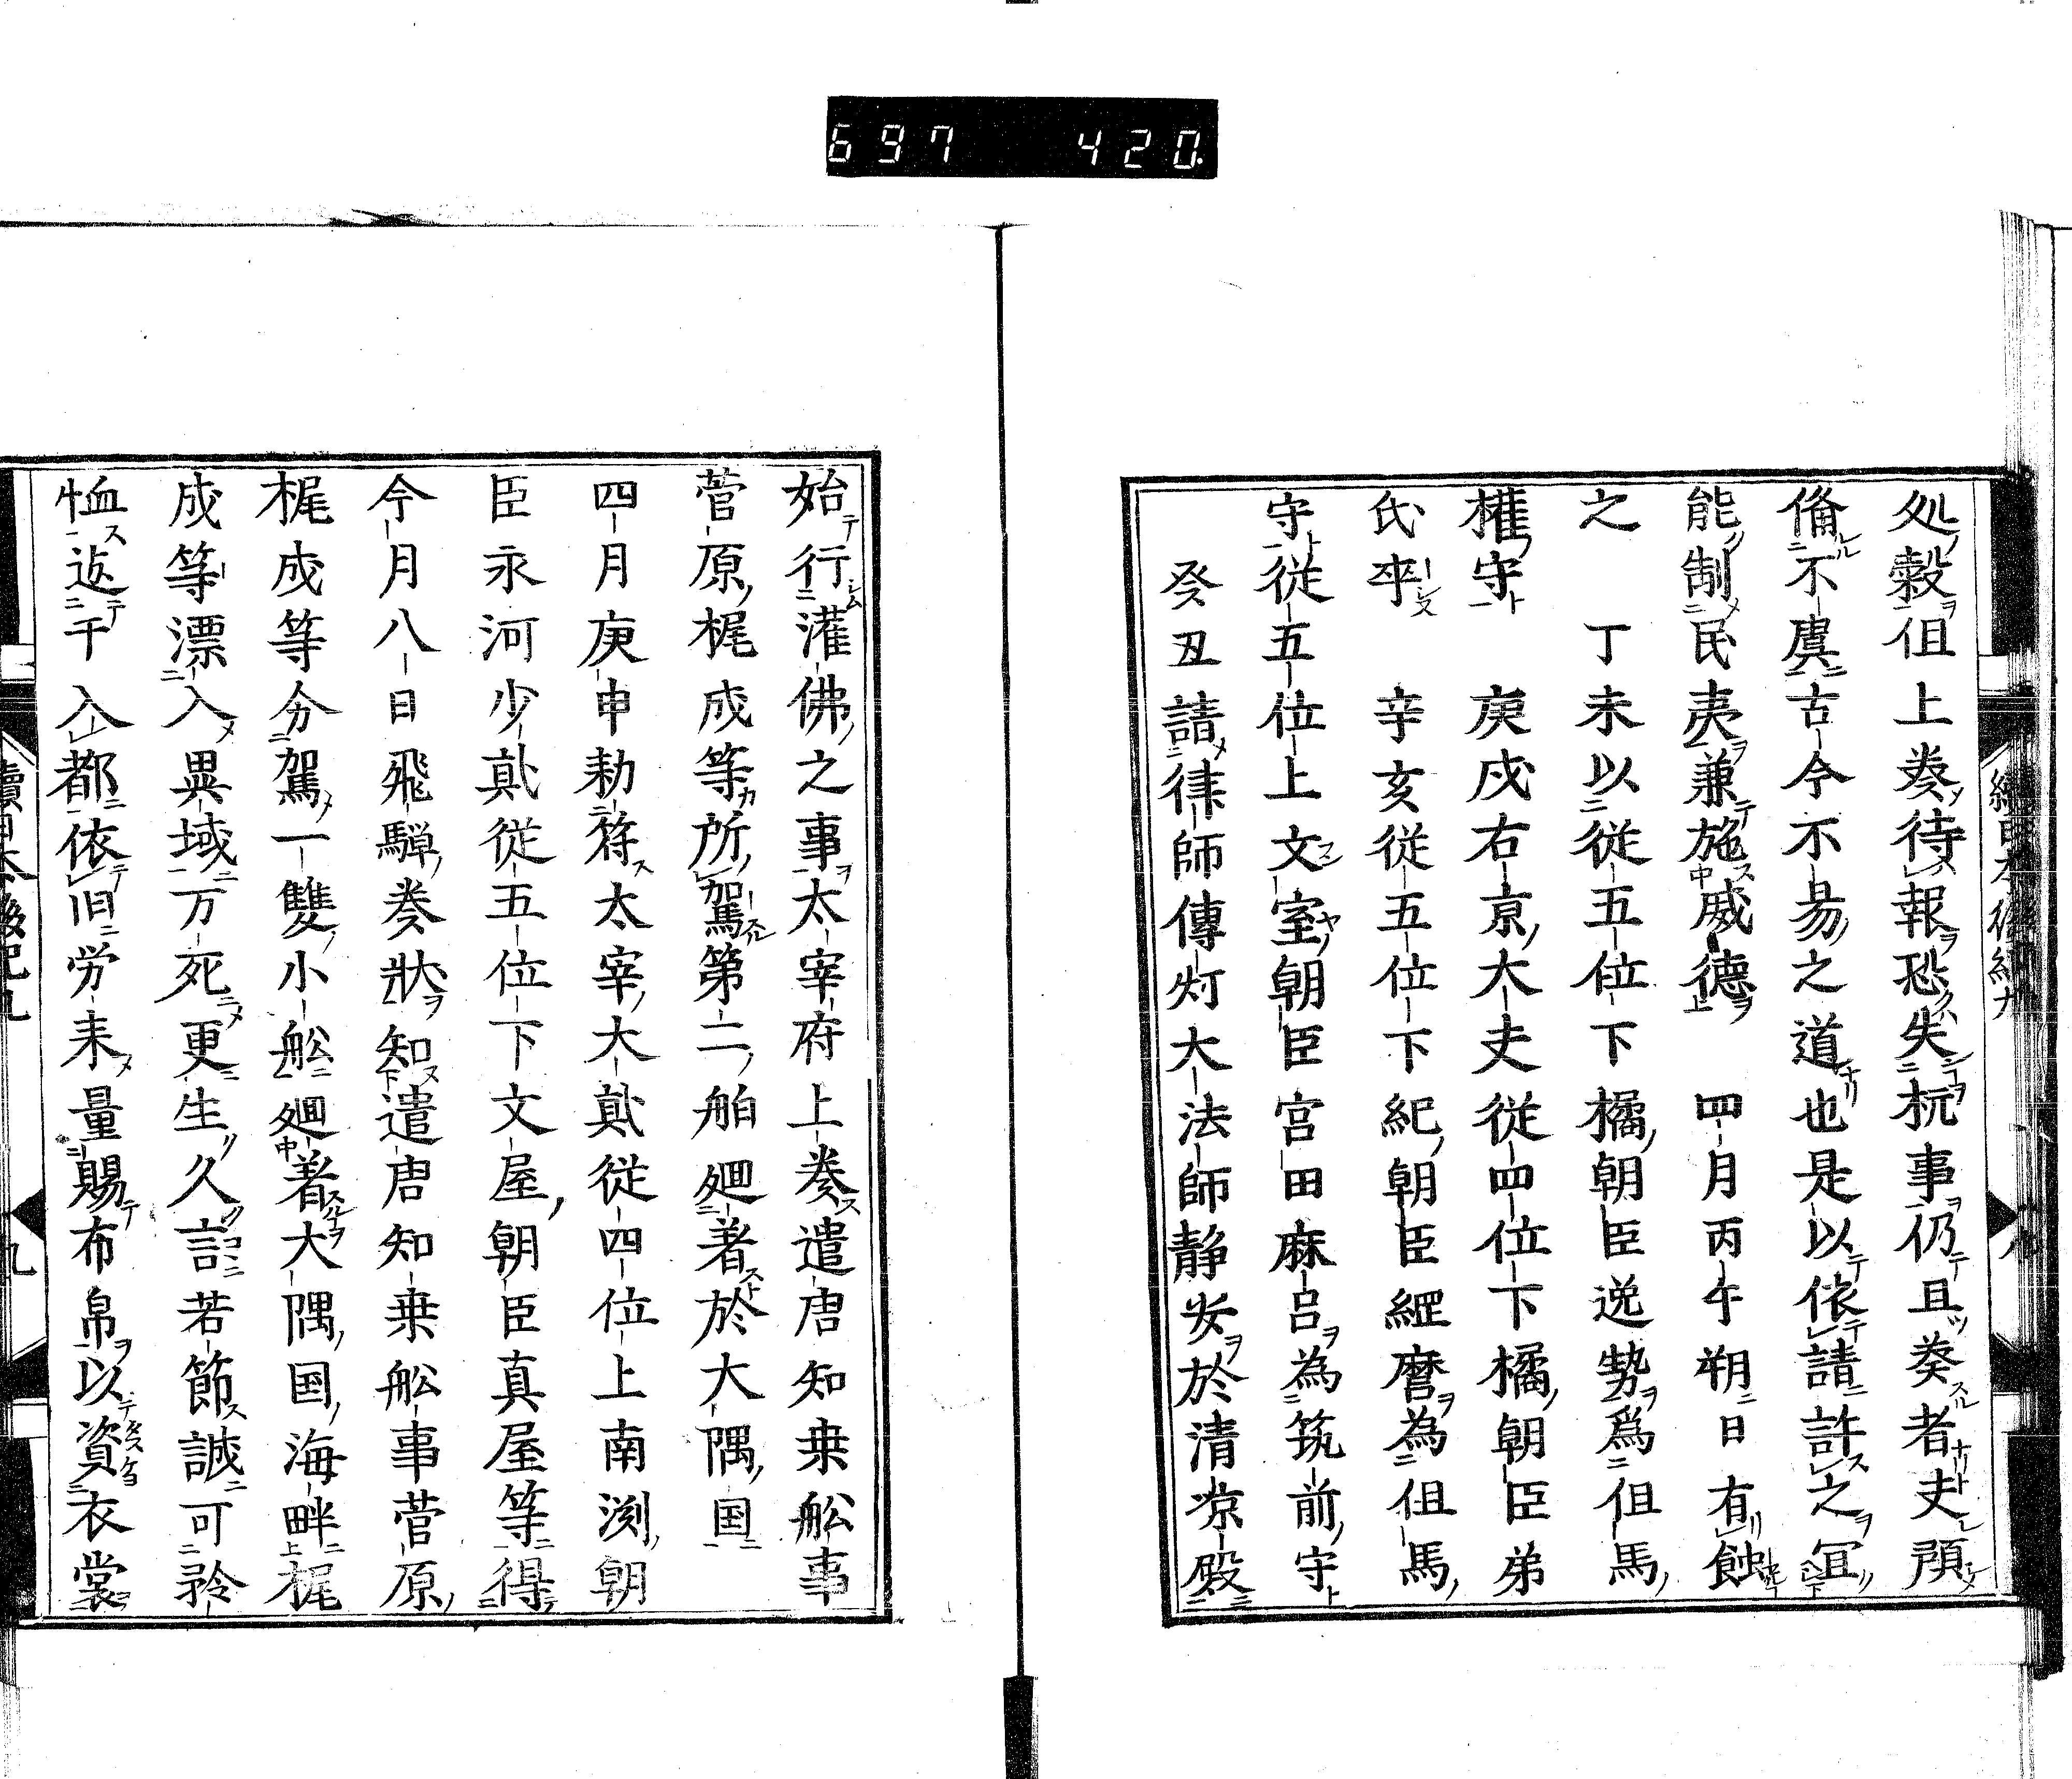 697 420
処穀但上奏待報恐失杭事仍且奏者夫預
俻不虞古今不易之道也是以依請許之冝
能制民夷兼施威德 四月丙午朔日有蝕
之 丁未以従五位下橘朝臣逸勢爲但馬
権守 庚戌右京大夫従四位下橘朝臣弟
氏卒 辛亥従五位下紀朝臣綱麿為但馬
守従五位上文室朝臣宮田麻呂為筑前守
癸丑請律師傳灯大法師静安於清凉殿
始行灌佛之事太宰府上奏遣唐知乗舩事
菅原梶成等所駕第二舶廻著於大隅国
四月庚申勅符太宰大貮従四位上南渕朝
臣永河少貮従五位下文屋朝臣真屋等得
今月八日飛驒奏狀知遣唐知乗舩事菅原
梶成等分駕一雙小舩廻著大隅国海畔梶
成等漂入異域万死更生久言若節誠可矜
恤迄于入都依旧労来量賜布帛以資衣裳
續日本後紀九
九